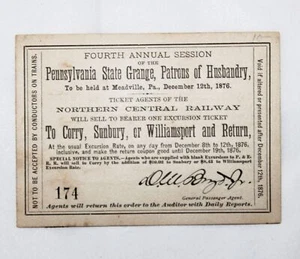 FOURTH ANNUAL SESSION
OF THE
Pennsylvania State Grange, Patrons of Husbandry,
To be held at Meadville, Pa., December 12th, 1876.
TICKET AGENTS OF THE
NORTHERN CENTRAL RAILWAY
WILL SELL TO BEARER ONE EXCURSION TICKET
To Corry, Sunbury, or Williamsport and Return,
At the usual Excursion Rate, on any day from December 8th to 12th, 1876,
inclusive, and make the return coupon good until December 19th, 1876.
SPECIAL NOTICE TO AGENTS.—Agents who are supplied with blank Excursions to P. & E.
R. R. will sell to Corry by the addition of to Sunbury or to Williamsport
Excursion Rate.
174
General Passenger Agent.
Agents will return this order to the Auditor with Daily Reports.
NOT TO BE ACCEPTED BY CONDUCTORS ON TRAINS.
Void if altered or presented after December 12th, 1876.